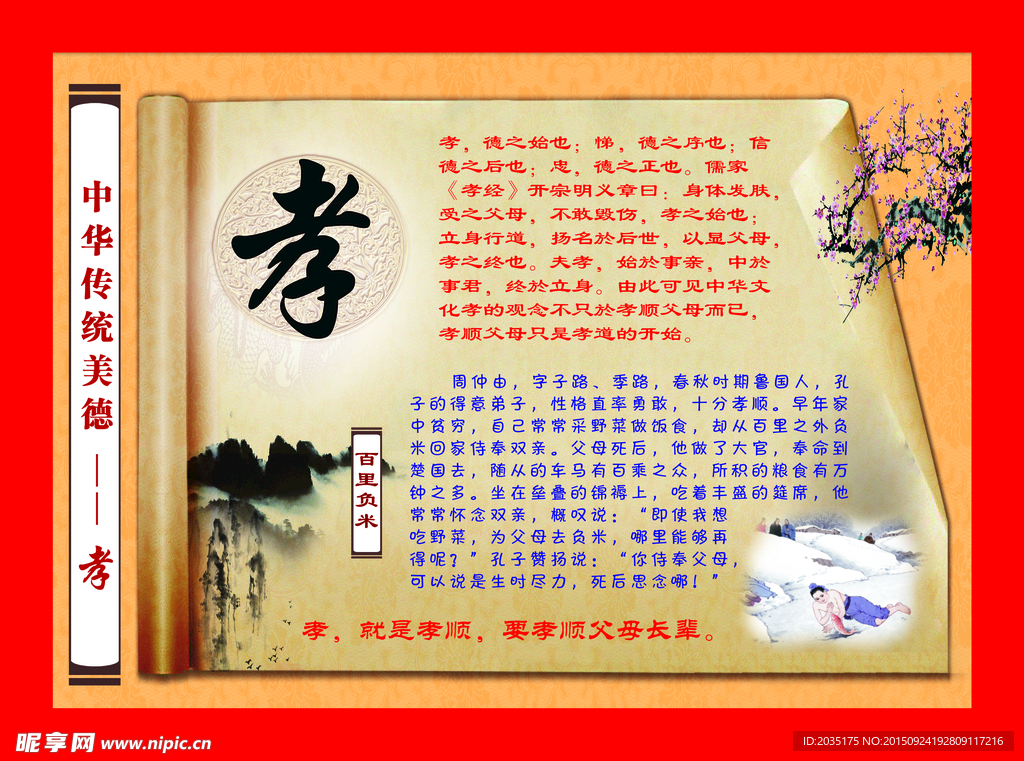 中华传统美德——孝
孝
孝，德之始也；悌，德之序也；信
德之后也；忠，德之正也。儒家
《孝经》开宗明义章曰：身体发肤，
受之父母，不敢毁伤，孝之始也；
立身行道，扬名於后世，以显父母，
孝之终也。夫孝，始於事亲，中於
事君，终於立身。由此可见中华文
化孝的观念不只於孝顺父母而已，
孝顺父母只是孝道的开始。
百里负米
周仲由，字子路、季路，春秋时期鲁国人，孔
子的得意弟子，性格直率勇敢，十分孝顺。早年家
中贫穷，自己常常采野菜做饭食，却从百里之外负
米回家侍奉双亲。父母死后，他做了大官，奉命到
楚国去，随从的车马有百乘之众，所积的粮食有万
钟之多。坐在垒叠的锦褥上，吃着丰盛的筵席，他
常常怀念双亲，慨叹说：“即使我想
吃野菜，为父母去负米，哪里能够再
得呢？”孔子赞扬说：“你侍奉父母，
可以说是生时尽力，死后思念哪！”
孝，就是孝顺，要孝顺父母长辈。
昵享网 www.nipic.cn
ID:2035175 NO:20150924192809117216